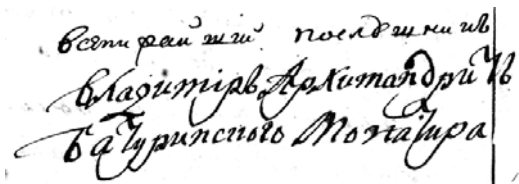 всенижайший послѣшникъ
Владимѣръ Архимандритъ
Батуринского Монастира